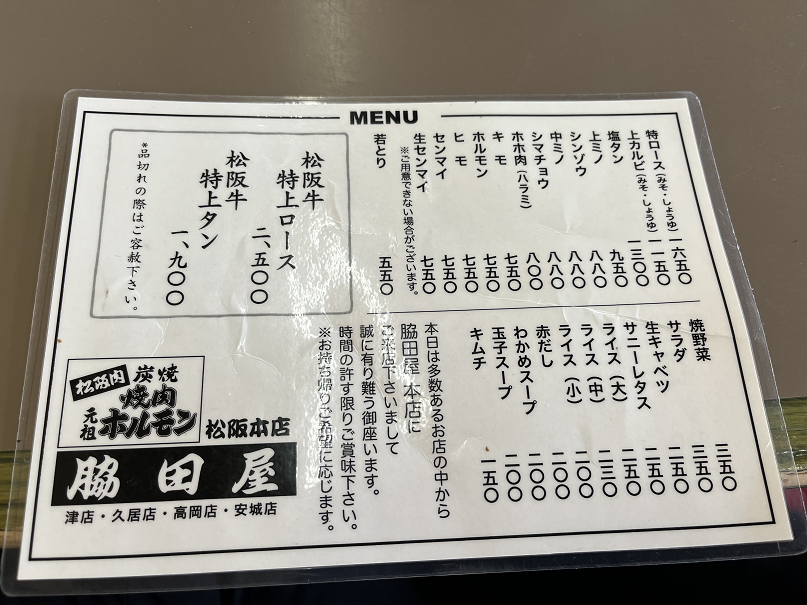 MENU
特ロース（みそ・しょうゆ） 一六五〇
上カルビ（みそ・しょうゆ） 一一五〇
塩タン 一三〇〇
上ミノ 九五〇
シンゾウ 八八〇
中ミノ 八八〇
シマチョウ 八〇〇
ホホ肉（ハラミ） 八〇〇
キモ 七五〇
ホルモン 七五〇
ヒモ 七五〇
センマイ 七五〇
生センマイ 七五〇
※ご用意できない場合がございます。
若とり 五五〇
松阪牛
特上ロース
二、五〇〇
松阪牛
特上タン
一、九〇〇
*品切れの際はご容赦下さい。
焼野菜 三五〇
サラダ 三五〇
生キャベツ 二五〇
サニーレタス 二五〇
ライス（大） 二五〇
ライス（中） 二三〇
ライス（小） 二〇〇
赤だし 二〇〇
わかめスープ 二〇〇
玉子スープ 二〇〇
キムチ 一五〇
本日は多数あるお店の中から
脇田屋 本店に
ご来店下さいまして
誠に有り難う御座います。
時間の許す限りご賞味下さい。
※お持ち帰りご希望に応じます。
松阪肉 炭焼
焼肉
元祖 ホルモン 松阪本店
脇田屋
津店・久居店・高岡店・安城店